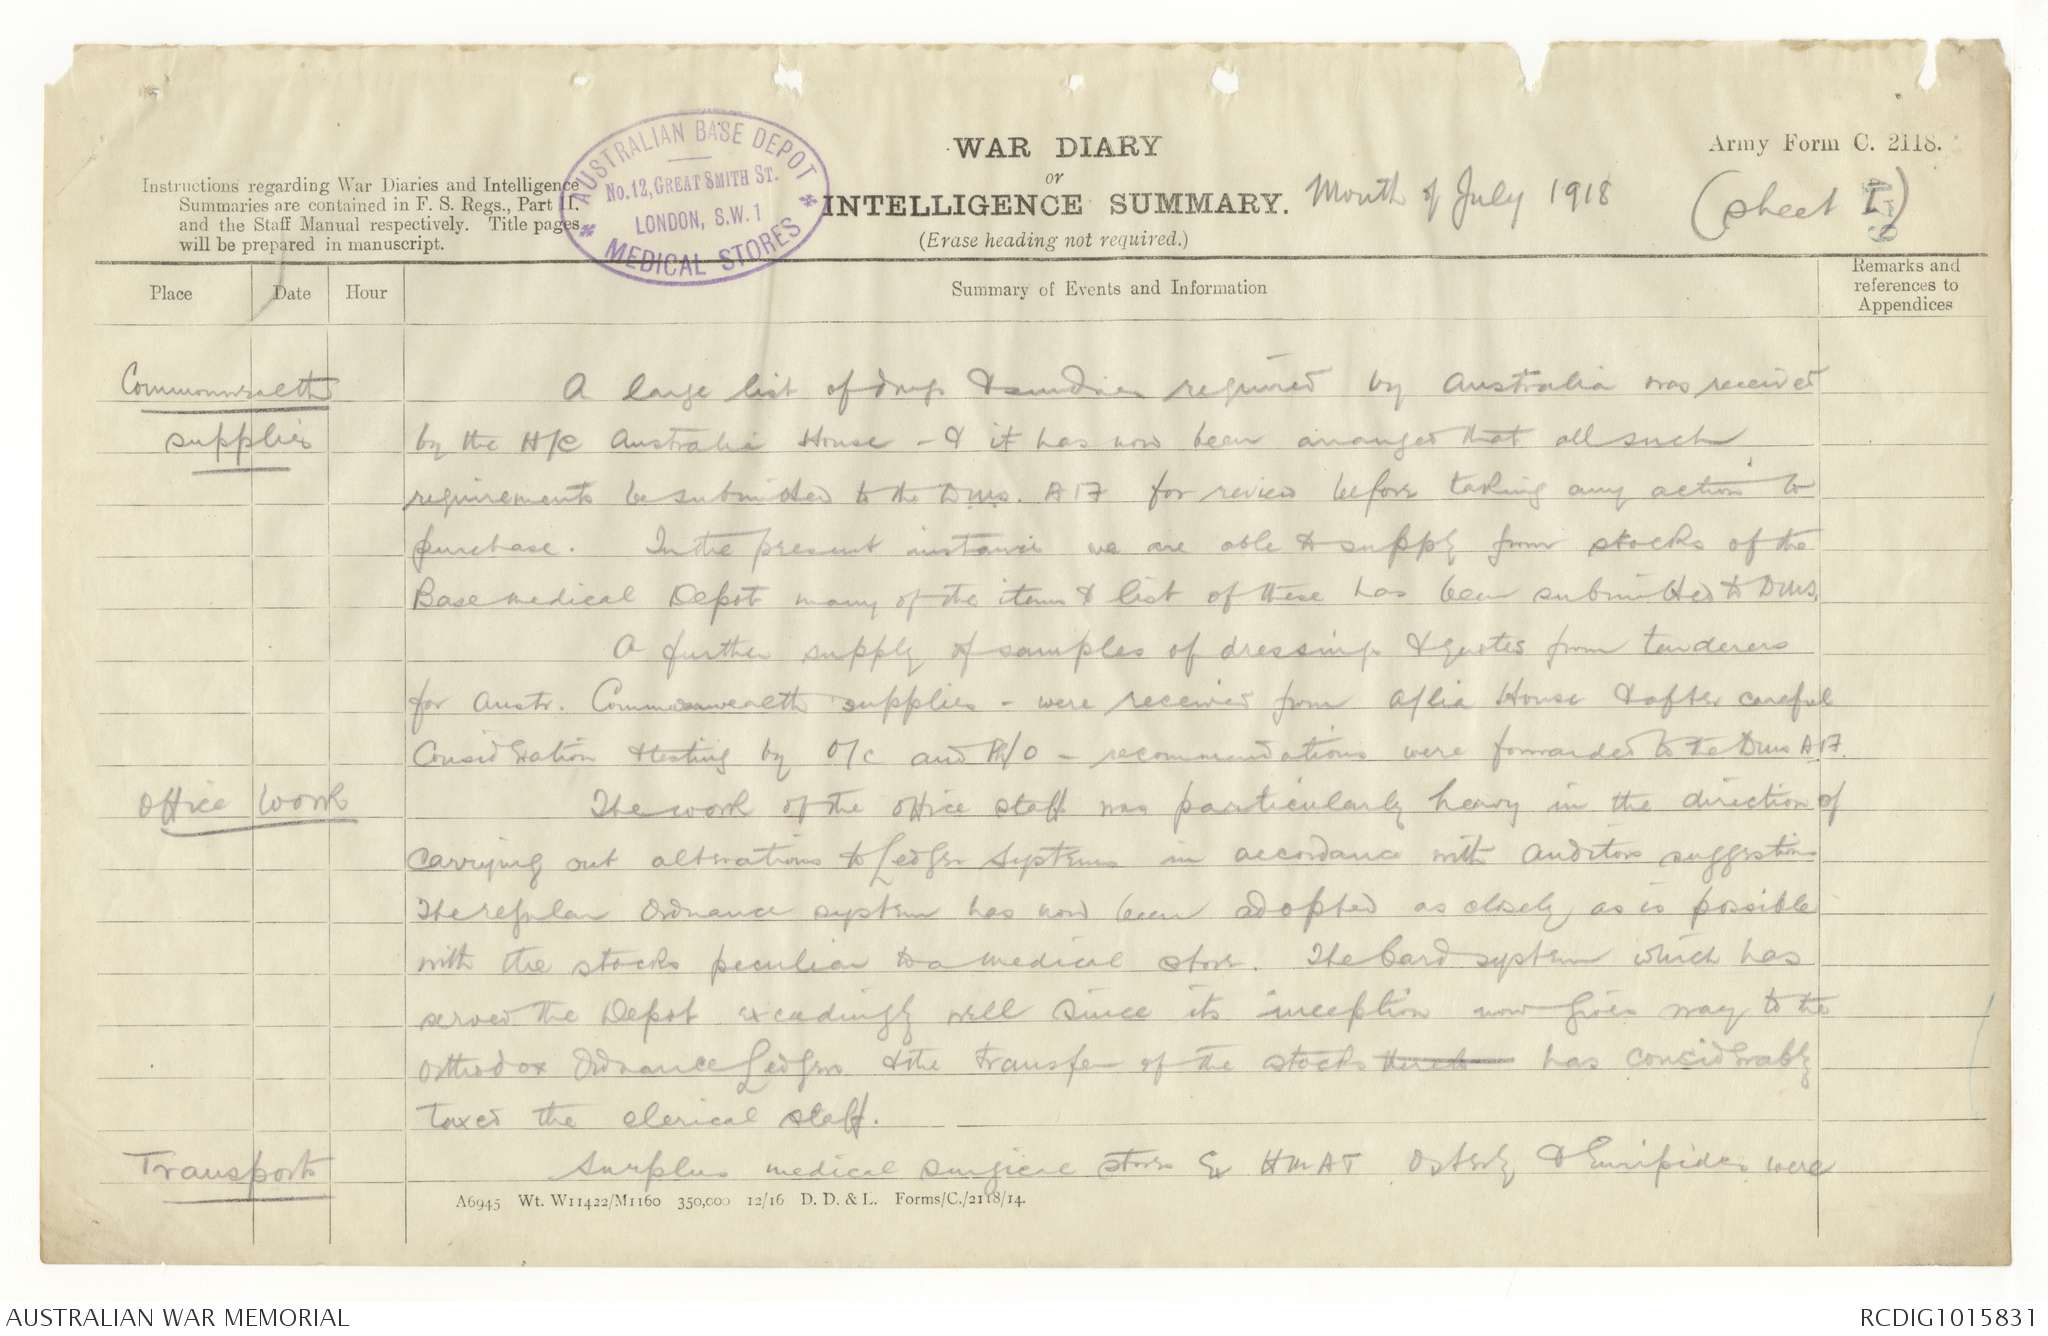 WAR DIARY
or
INTELLIGENCE SUMMARY.
(Erase heading not required.)
Army Form C. 2118.
Month of July 1918
(Sheet I)
Instructions regarding War Diaries and Intelligence
Summaries are contained in F. S. Regs., Part II.
and the Staff Manual respectively. Title pages
will be prepared in manuscript.
AUSTRALIAN BASE DEPOT
No. 12, GREAT SMITH ST.
LONDON, S.W.1
MEDICAL STORES
Place Date Hour Summary of Events and Information Remarks and references to Appendices
Commonwealth A large list of drugs & sundries required by Australia was received
supplies by the H/C Australia House - & it has now been arranged that all such
requirements be submitted to the D.M.S. AIF for review before taking any action to
purchase. In the present instance we are able to supply from stocks of the
Base medical Depot many of the items & list of these has been submitted to DMS.
A further supply of samples of dressings & quotes from tenderers
for Austr. Commonwealth supplies - were received from A/lia House & after careful
Consideration & testing by O/C and Ph/O - recommendations were forwarded to the DMS AIF.
Office Work The work of the office staff was particularly heavy in the direction of
carrying out alterations to Ledger Systems in accordance with Auditors suggestions
The regular Ordnance system has now been adopted as closely as is possible
with the stocks peculiar to a medical store. The Card system which has
served the Depot exceedingly well since its inception now gives way to the
orthodox Ordnance Ledgers & the transfer of the stocks has considerably
taxed the clerical staff.
Transports Surplus medical surgical stores Ex HMAT Osterly & Euripides were
A6945 Wt. W11422/M1160 350,000 12/16 D. D. & L. Forms/C./2118/14.
AUSTRALIAN WAR MEMORIAL
RCDIG1015831